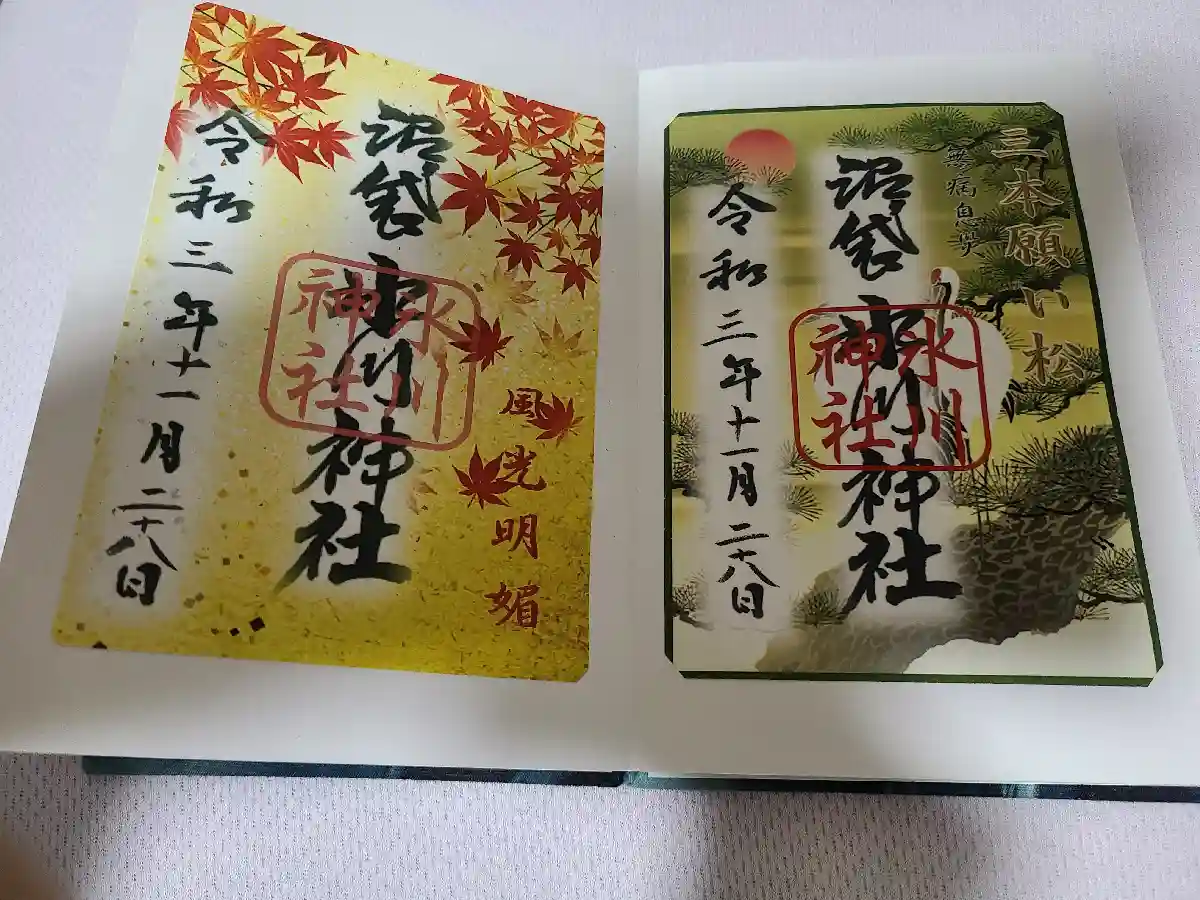 三本願い松
無病息災
沼袋氷川神社
氷川
神社
令和三年十一月二十八日
風光明媚
沼袋氷川神社
氷川
神社
令和三年十一月二十八日